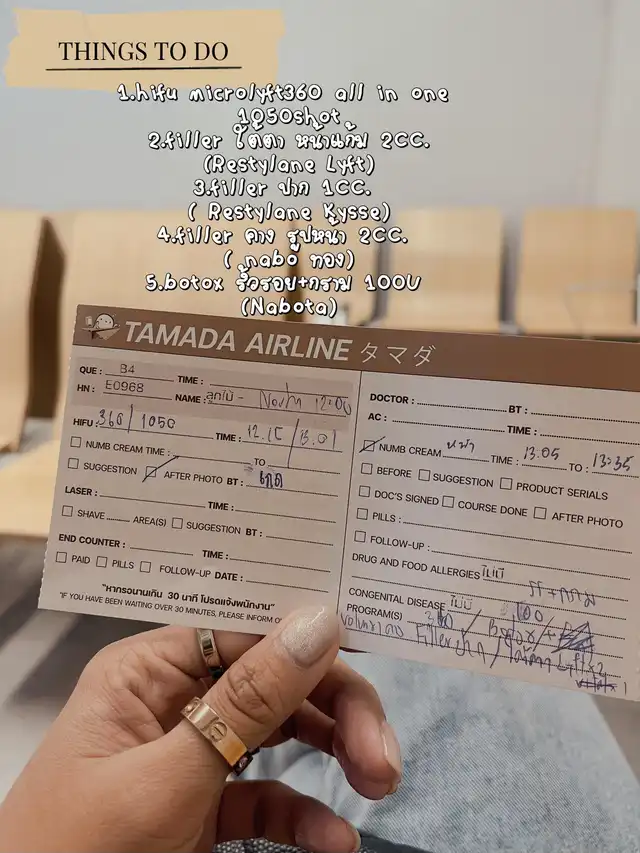 THINGS TO DO
1.hifu microlyft360 all in one
1050shot
2.filler ใต้ตา หน้าแก้ม 2CC.
(Restylane Lyft)
3.filler ปาก 1CC.
( Restylane Kysse)
4.filler คาง รูปหน้า 2CC.
( nabo ทอง)
5.botox ริ้วรอย+กราม 100U
(Nabota)
TAMADA AIRLINE タマダ
QUE : B4 TIME :
HN : E0968 NAME : 12:00
HIFU : 360 / 1050 TIME : 12.15 / 13.01
NUMB CREAM TIME : TO
SUGGESTION AFTER PHOTO BT :
LASER : TIME :
SHAVE AREA(S) SUGGESTION BT :
END COUNTER : TIME :
PAID PILLS FOLLOW-UP DATE :
"หากรอนานเกิน 30 นาที โปรดแจ้งพนักงาน"
"IF YOU HAVE BEEN WAITING OVER 30 MINUTES, PLEASE INFORM
DOCTOR : BT :
AC : TIME :
NUMB CREAM หน้า TIME : 13.05 TO : 13:35
BEFORE SUGGESTION PRODUCT SERIALS
DOC'S SIGNED COURSE DONE AFTER PHOTO
PILLS :
FOLLOW-UP :
DRUG AND FOOD ALLERGIES ไม่มี
CONGENITAL DISEASE ไม่มี
PROGRAM(S) 100
Filler ปาก / ใต้ตา Lyft x2